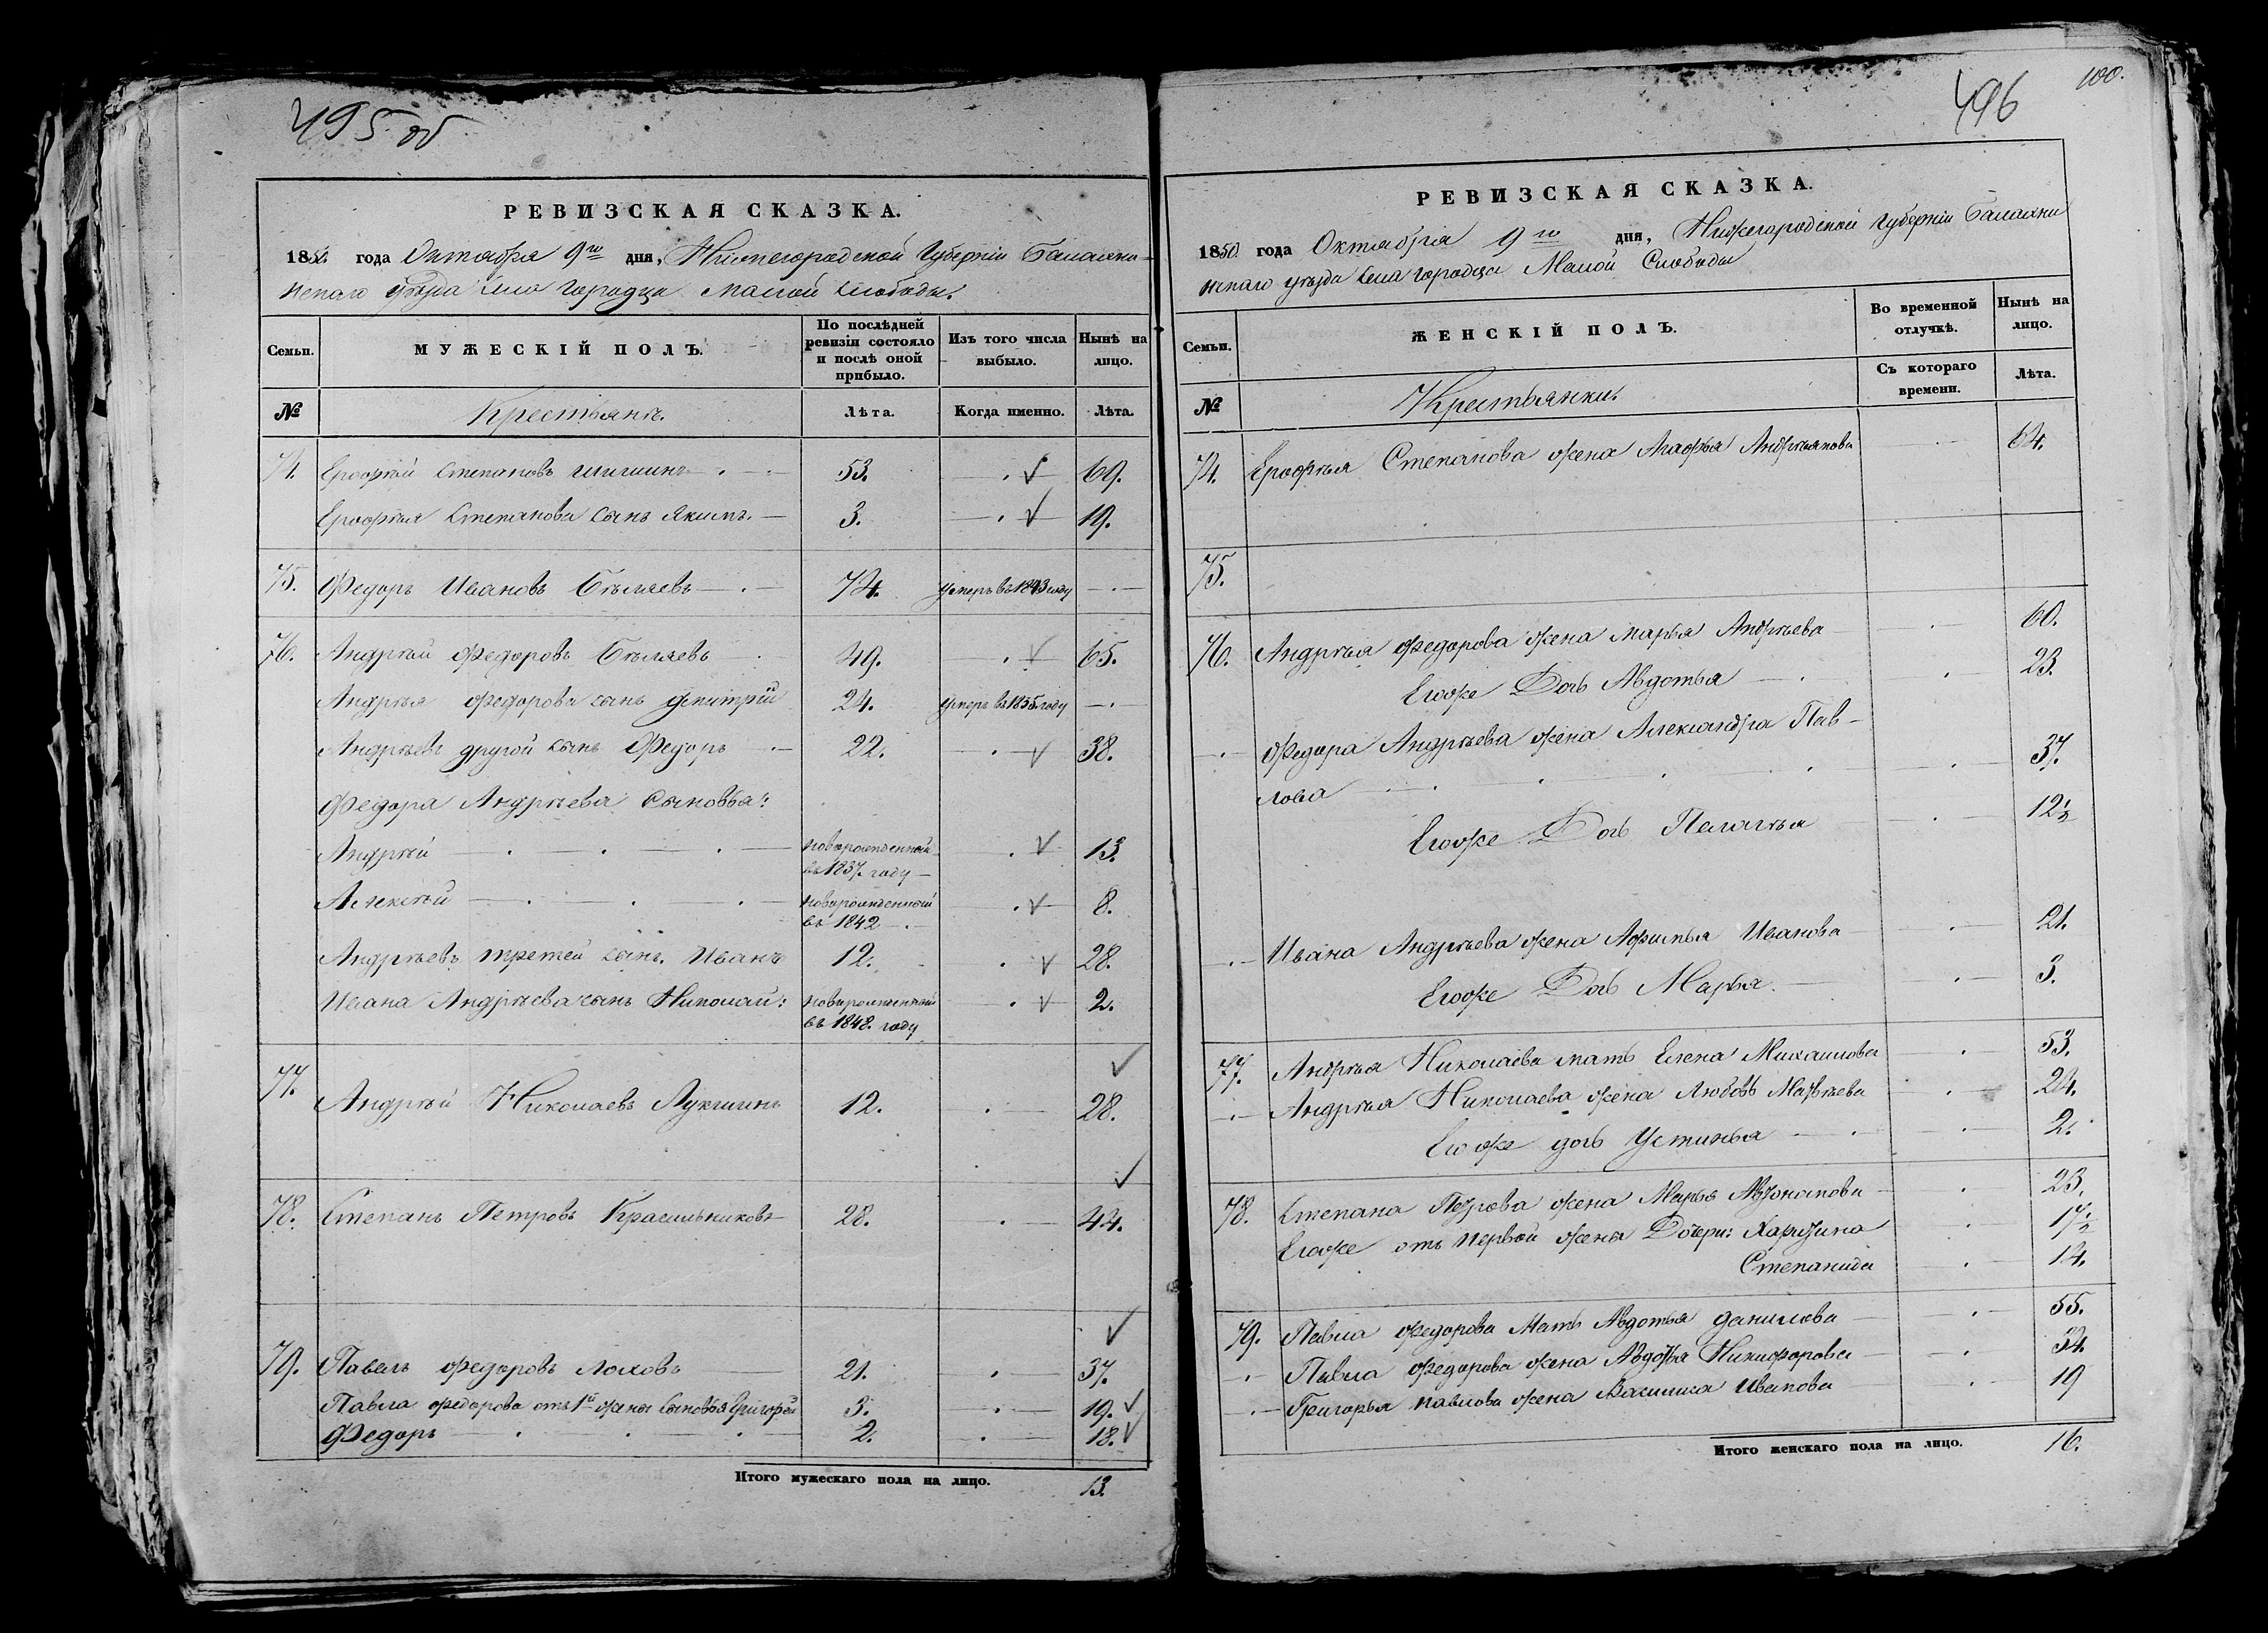 495 об
РЕВИЗСКАЯ СКАЗКА.
1850 года Октября 9го дня, Нижегородской Губерніи Балахни-
нскаго уѣзда села Городца Малой Слободы.
Семьи.
МУЖЕСКІЙ ПОЛЪ.
По послѣдней ревизіи состояло и послѣ оной прибыло.
Изъ того числа выбыло.
Нынѣ на лицо.
№
Крестьянъ.
Лѣта.
Когда именно.
Лѣта.
74. Ерофѣй Степановъ Шишинъ 53. 69.
Ерофѣя Степанова сынъ Якимъ. 3. 19.
75. Федоръ Ивановъ Бѣляевъ 74. умеръ въ 1843 году
76. Андрѣй Федоровъ Бѣляевъ 49. 65.
Андрѣя Федорова сынъ Дмитрій 24. умеръ въ 1835 году
Андрѣевъ другой сынъ Федоръ 22. 38.
Федора Андрѣева сыновья:
Андрѣй новорожденный въ 1837 году 13.
Алексѣй новорожденный въ 1842 8.
Андрѣевъ третей сынъ Иванъ 12. 28.
Ивана Андрѣева сынъ Николай: новорожденный въ 1848 году 2.
77. Андрѣй Николаевъ Лукшинъ 12. 28.
78. Степанъ Петровъ Красильниковъ 28. 44.
79. Павелъ Федоровъ Лоховъ 21. 37.
Павла Федорова отъ 1й жены сыновья Григорей 3. 19.
Федоръ 2. 18.
Итого мужескаго пола на лицо. 13.
496
100.
РЕВИЗСКАЯ СКАЗКА.
1850 года Октября 9го дня, Нижегородской Губерніи Балахни
нскаго уѣзда села Городца Малой Слободы
Семьи.
ЖЕНСКІЙ ПОЛЪ.
Во временной отлучкѣ.
Нынѣ на лицо.
№
Крестьянки.
Съ котораго времени.
Лѣта.
74. Ерофѣя Степанова жена Агафья Андреянова 64.
75.
76. Андрѣя Федорова жена Марья Андрѣева 60.
Егоже Дочь Авдотья 23.
Федора Андрѣева жена Александра Пав-
лова 37.
Егоже Дочь Пелагѣя 12½
Ивана Андрѣева жена Афимья Иванова 21.
Егоже Дочь Марья. 3.
77. Андрѣя Николаева мать Елена Михаилова 53.
Андрѣя Николаева жена Любовь Матвѣева 24.
Егоже дочь Устинья 2.
78. Степана Петрова жена Марья Артонамова 23.
Егоже отъ первой жены Дочери: Харитина 17½
Степанида 14.
79. Павла Федорова Мать Авдотья Данилова 55.
Павла Федорова жена Авдотья Никифорова 34.
Григорья Павлова жена Василиса Иванова 19
Итого женскаго пола на лицо. 16.